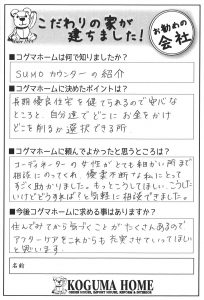 こだわりの家が
建ちました!
お勧めの
会社
■コグマホームは何で知りましたか?
SUMOカウンターの紹介
■コグマホームに決めたポイントは?
長期優良住宅を建てられるので安心な
ところと、自分達でどこにお金をかけ
どこを削るか選択できる所.
■コグマホームに頼んでよかったと思うところは?
コーディネーターの女性がとても細かい所まで
相談にのってくれ、優柔不断な私にとって
すごく助かりました。もっとこうしてほしい、こうした
いけどどうすれば?と気軽に相談できました。
■今後コグマホームに求める事はありますか?
住んでみてから気づくことがたくさんあるので
アフターケアをこれからも充実させていってほしい
と思います.
名前
KOGUMA HOME